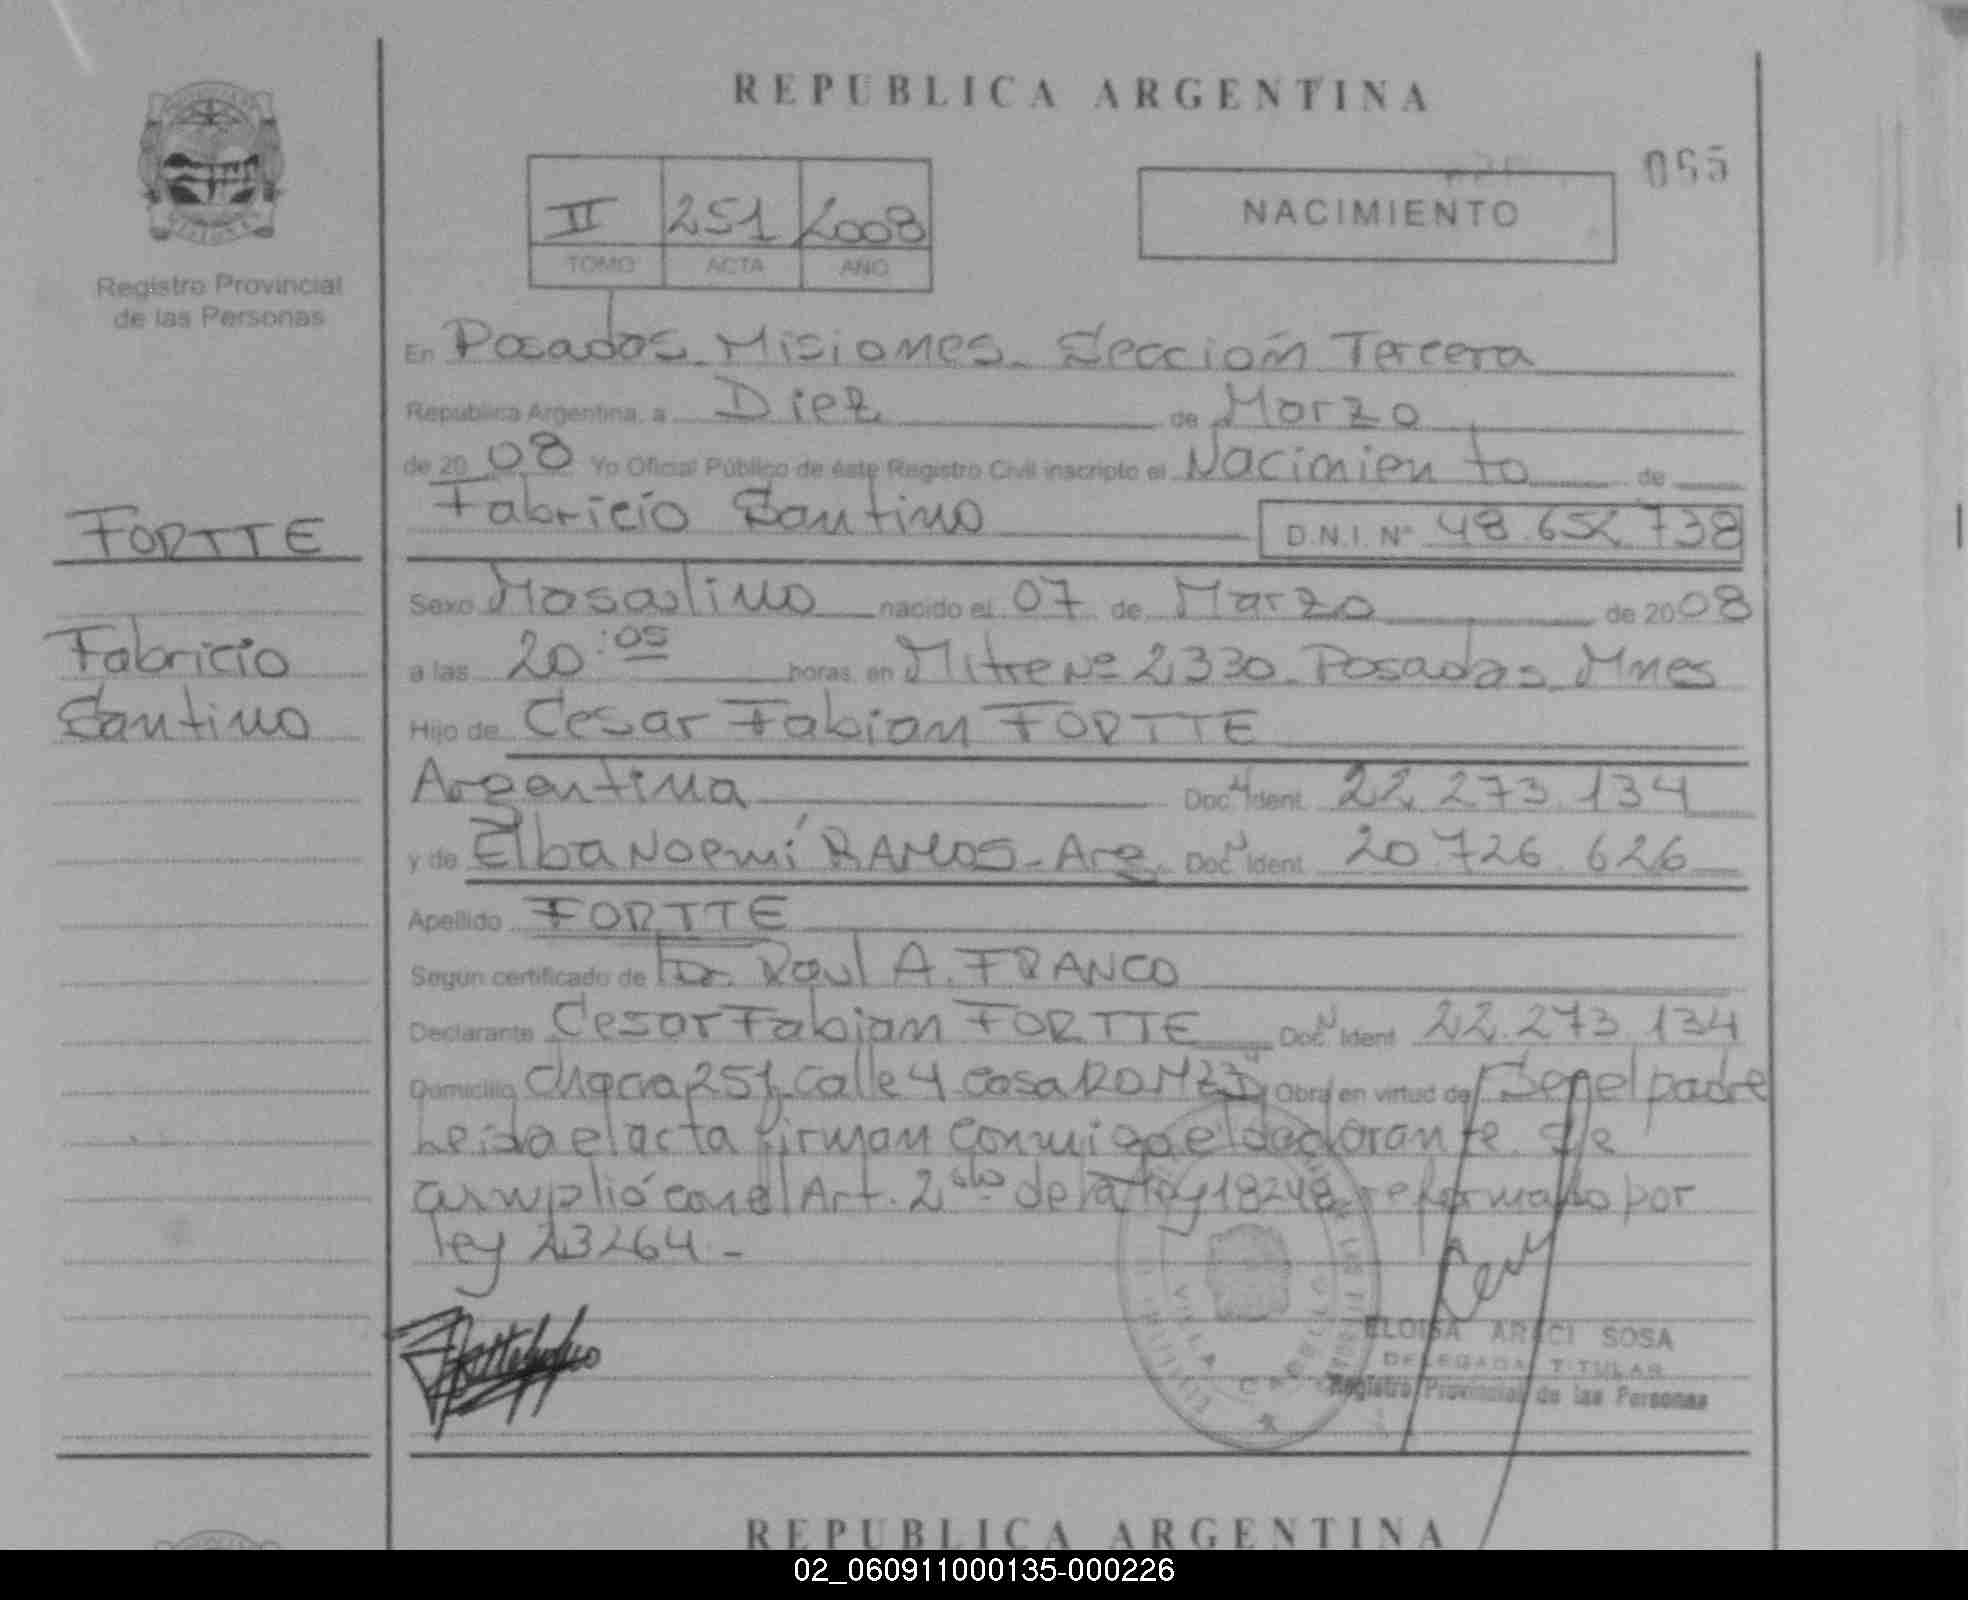 REPUBLICA ARGENTINA
II 251 2008
TOMO ACTA AÑO
NACIMIENTO
055
Registro Provincial
de las Personas
En Posadas - Misiones - Sección Tercera
República Argentina, a Diez de Marzo
de 20 08 Yo Oficial Público de éste Registro Civil inscripto el Nacimiento de
Fabricio Santino D.N.I. Nº 48.652.738
FORTTE
Fabricio
Santino
Sexo Masculino nacido el 07 de Marzo de 2008
a las 20:05 horas, en Mitre Nº 2330 - Posadas - Mnes
Hijo de Cesar Fabian FORTTE
Argentina Doc. Ident. 22.273.134
y de Elba Noemí RAMOS - Arg. Doc. Ident. 20.726.626
Apellido FORTTE
Según certificado de Dr. Raul A. FRANCO
Declarante Cesar Fabian FORTTE Doc. Ident. 22.273.134
Domicilio Chacra 251 Calle 4 casa Obra en virtud de Ser el padre
Leída el acta firman conmigo el declarante. Se
cumplió con el Art. 2 de la ley 18248 reformado por
ley 23264 -
VILLA CABELLO
ELOISA ARACI SOSA
DELEGADA TITULAR
Registro Provincial de las Personas
REPUBLICA ARGENTINA
02_060911000135-000226